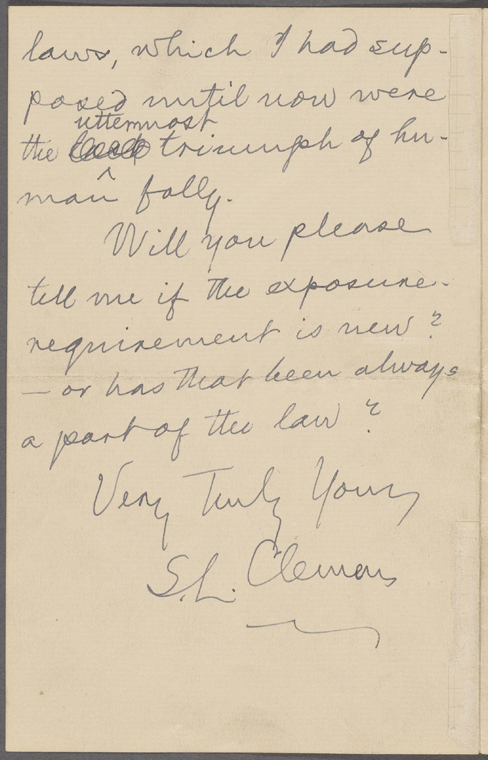 laws, which I had sup-
posed until now were
uttermost
the triumph of hu-
man folly.
Will you please
tell me if the exposure-
requirement is new?
— or has that been always
a part of the law?
Very Truly Yours
S.L. Clemens